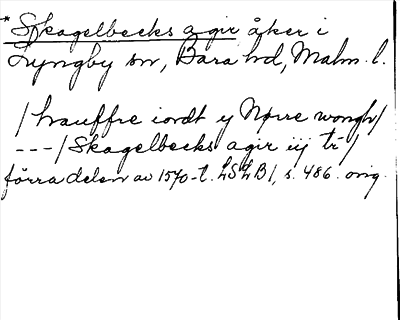 * Skagelbecks agir åker i
Lyngby sn, Bara hd, Malm. l.
/hauffre iordt y Nørre wongh/
---/Skagelbecks agir iij tr/
förra delen av 1570-t. LSLB1, s. 486. orig.